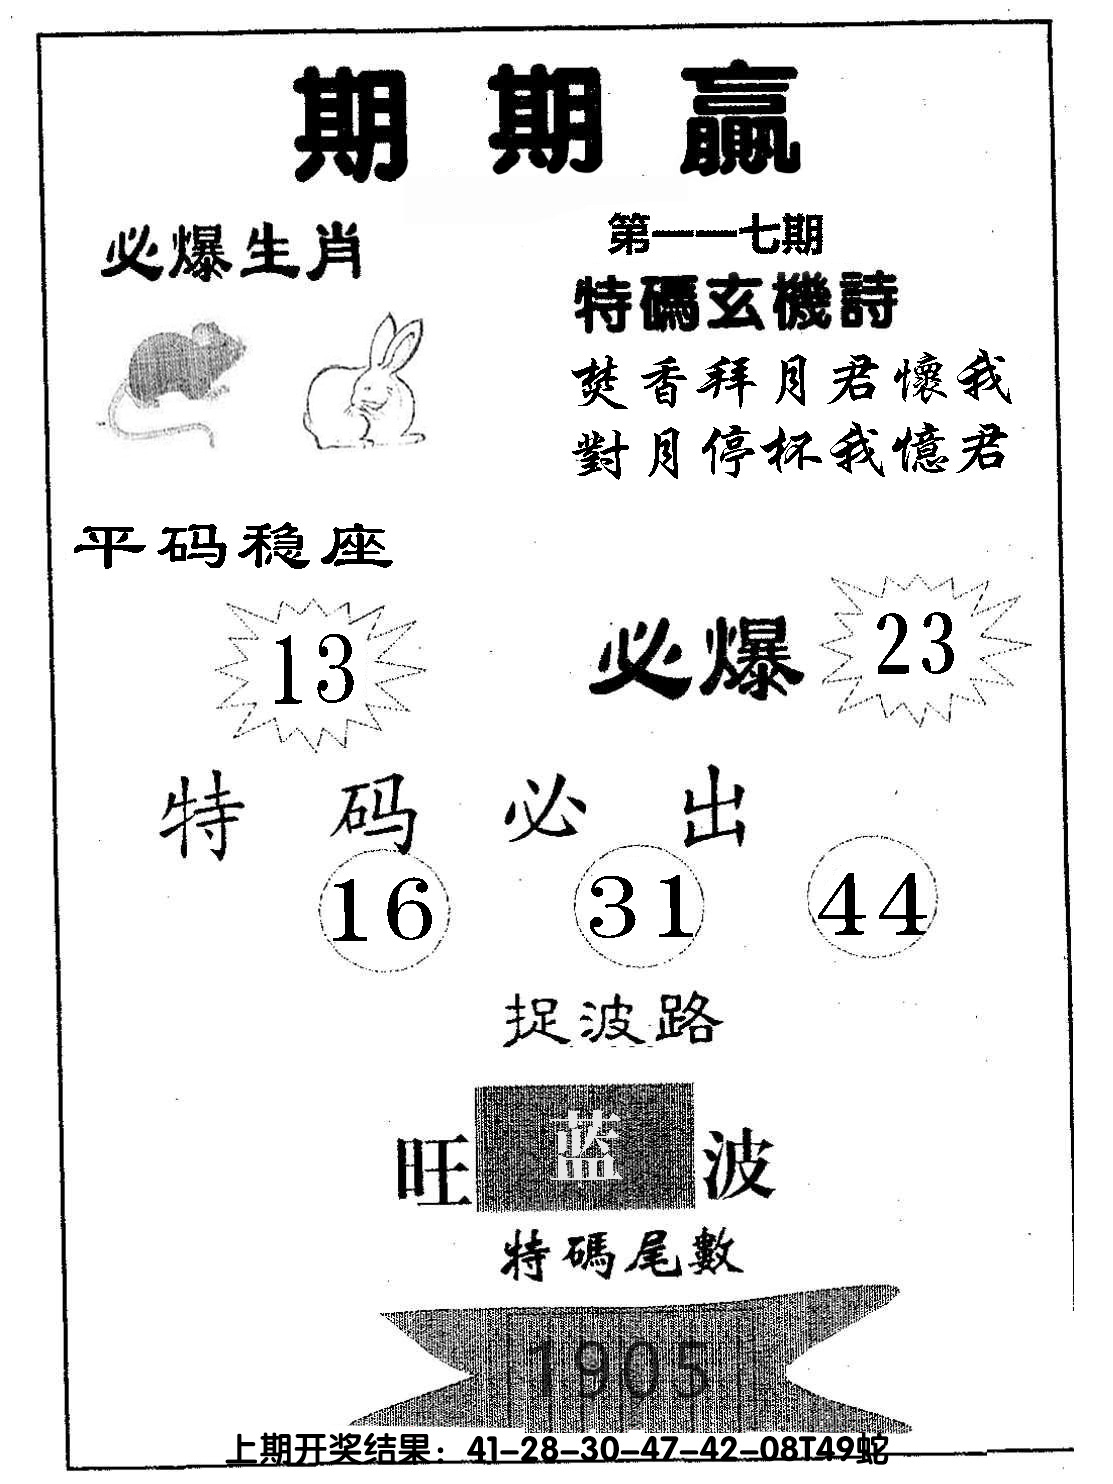 期期赢
必爆生肖
第一一七期
特碼玄機詩
焚香拜月君懷我
對月停杯我憶君
平码稳座
13
必爆
23
特码必出
16 31 44
捉波路
旺蓝波
特碼尾數
1905
上期开奖结果：41-28-30-47-42-08T49蛇